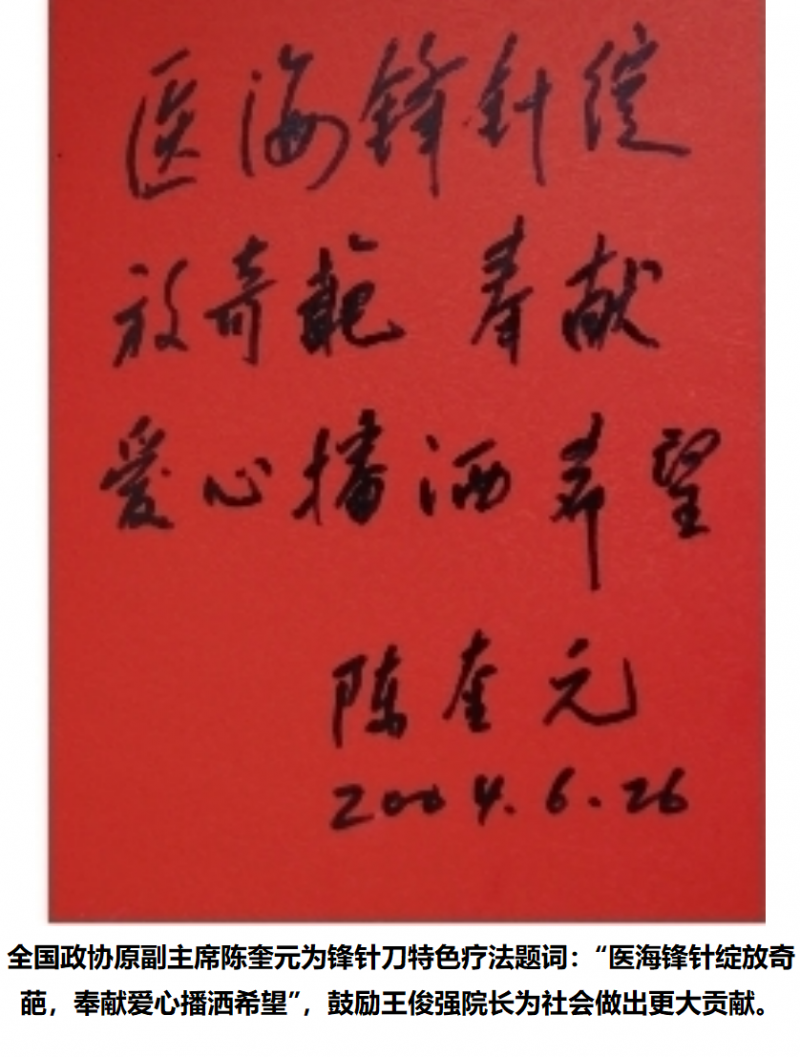 医海锋针绽
放奇葩 奉献
爱心播洒希望
陈奎元
2004.6.26
全国政协原副主席陈奎元为锋针刀特色疗法题词：“医海锋针绽放奇
葩，奉献爱心播洒希望”，鼓励王俊强院长为社会做出更大贡献。